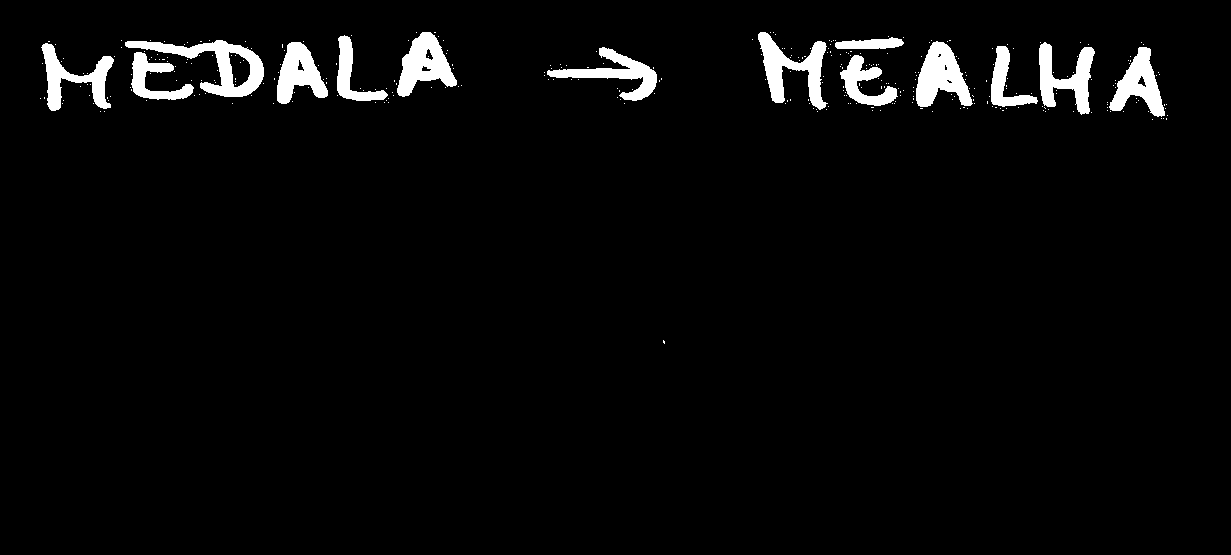 MĒDALA → MĒALHA